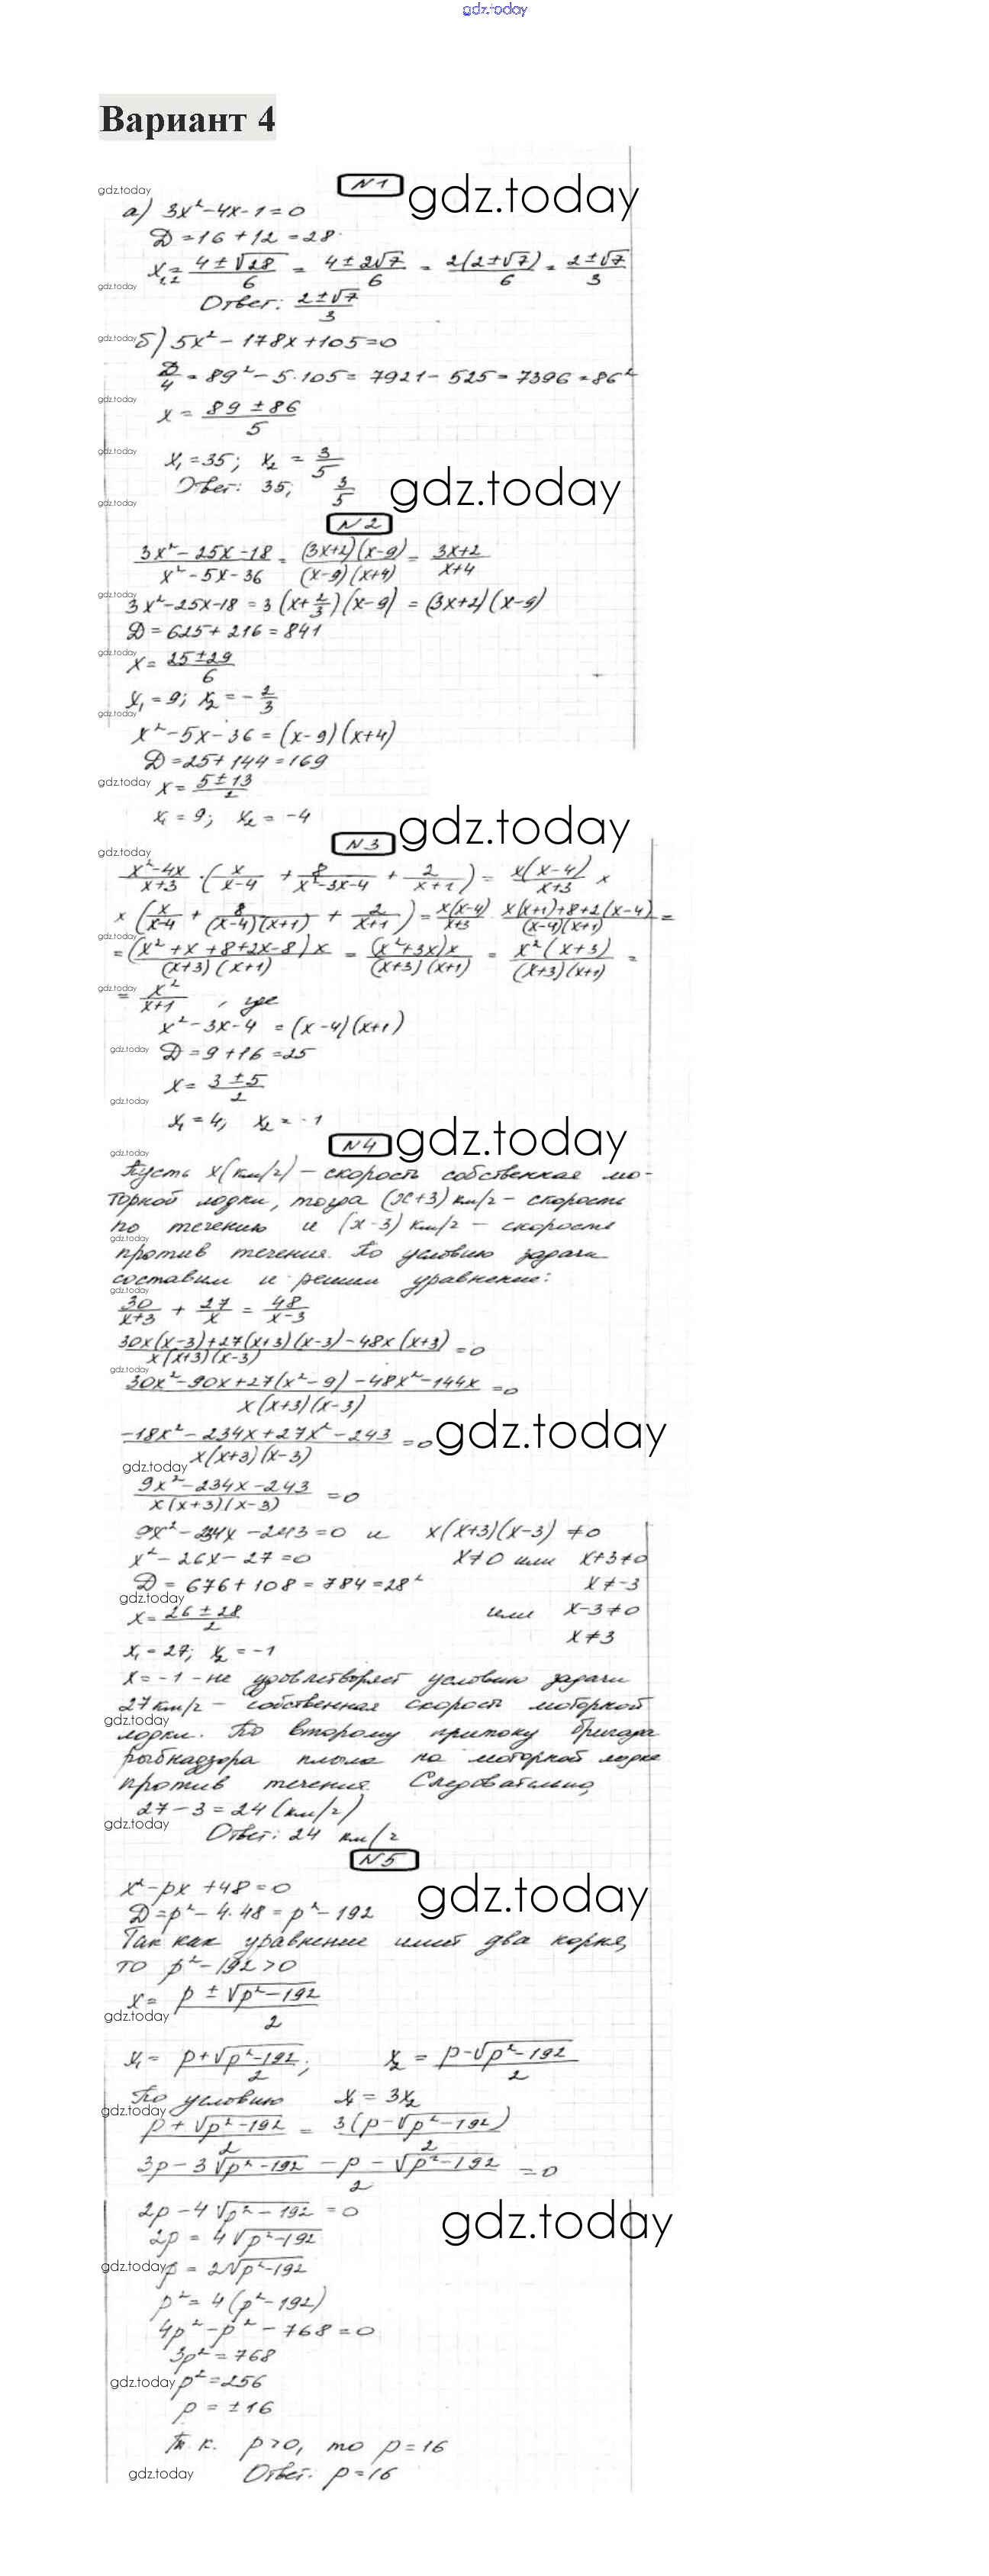 gdz.today
Вариант 4
N1
gdz.today
gdz.today
а) 3x² - 4x - 1 = 0
D = 16 + 12 = 28
x₁,₂ = (4 ± √28)/6 = (4 ± 2√7)/6 = 2(2 ± √7)/6 = (2 ± √7)/3
gdz.today
Ответ: (2 ± √7)/3
gdz.today
б) 5x² - 178x + 105 = 0
D/4 = 89² - 5·105 = 7921 - 525 = 7396 = 86²
gdz.today
x = (89 ± 86)/5
gdz.today
x₁ = 35; x₂ = 3/5
Ответ: 35; 3/5
gdz.today
gdz.today
N2
(3x² - 25x - 18)/(x² - 5x - 36) = (3x+2)(x-9)/(x-9)(x+4) = (3x+2)/(x+4)
gdz.today
3x² - 25x - 18 = 3(x + 2/3)(x - 9) = (3x+2)(x-9)
D = 625 + 216 = 841
gdz.today
x = (25 ± 29)/6
x₁ = 9; x₂ = -2/3
gdz.today
x² - 5x - 36 = (x-9)(x+4)
D = 25 + 144 = 169
gdz.today
x = (5 ± 13)/2
x₁ = 9; x₂ = -4
gdz.today
N3
gdz.today
(x² - 4x)/(x+3) · (x/(x-4) + 8/(x² - 3x - 4) + 2/(x+1)) = x(x-4)/(x+3) ×
× (x/(x-4) + 8/((x-4)(x+1)) + 2/(x+1)) = x(x-4)/(x+3) · (x(x+1)+8+2(x-4))/((x-4)(x+1)) =
gdz.today
= (x² + x + 8 + 2x - 8)x/((x+3)(x+1)) = (x² + 3x)x/((x+3)(x+1)) = x²(x+3)/((x+3)(x+1)) =
gdz.today
= x²/(x+1), где
x² - 3x - 4 = (x-4)(x+1)
gdz.today
D = 9 + 16 = 25
x = (3 ± 5)/2
gdz.today
x₁ = 4; x₂ = -1
N4
gdz.today
gdz.today
Пусть x (км/г) - скорость собственная мо-
торной лодки, тогда (x+3) км/г - скорость
по течению и (x-3) км/г - скорость
gdz.today
против течения. По условию задачи
составим и решим уравнение:
gdz.today
30/(x+3) + 27/x = 48/(x-3)
(30x(x-3)+27(x+3)(x-3)-48x(x+3))/(x(x+3)(x-3)) = 0
gdz.today
(30x² - 90x + 27(x² - 9) - 48x² - 144x)/(x(x+3)(x-3)) = 0
(-18x² - 234x + 27x² - 243)/(x(x+3)(x-3)) = 0
gdz.today
gdz.today
(9x² - 234x - 243)/(x(x+3)(x-3)) = 0
9x² - 234x - 243 = 0 и x(x+3)(x-3) ≠ 0
x² - 26x - 27 = 0 x ≠ 0 или x+3 ≠ 0
D = 676 + 108 = 784 = 28² x ≠ -3
gdz.today
x = (26 ± 28)/2 или x-3 ≠ 0
x ≠ 3
x₁ = 27; x₂ = -1
x = -1 - не удовлетворяет условию задачи
27 км/г - собственная скорость моторной
gdz.today
лодки. По второму притоку бригада
рыбнадзора плыла на моторной лодке
против течения. Следовательно,
27 - 3 = 24 (км/г)
gdz.today
Ответ: 24 км/г
N5
x² - px + 48 = 0
gdz.today
D = p² - 4·48 = p² - 192
Так как уравнение имеет два корня,
то p² - 192 > 0
x = (p ± √(p² - 192))/2
gdz.today
x₁ = (p + √(p² - 192))/2; x₂ = (p - √(p² - 192))/2
По условию x₁ = 3x₂
gdz.today
(p + √(p² - 192))/2 = 3(p - √(p² - 192))/2
(3p - 3√(p² - 192) - p - √(p² - 192))/2 = 0
2p - 4√(p² - 192) = 0
gdz.today
2p = 4√(p² - 192)
gdz.today
p = 2√(p² - 192)
p² = 4(p² - 192)
4p² - p² - 768 = 0
3p² = 768
gdz.today
p² = 256
p = ± 16
Т.к. p > 0, то p = 16
gdz.today
Ответ: p = 16